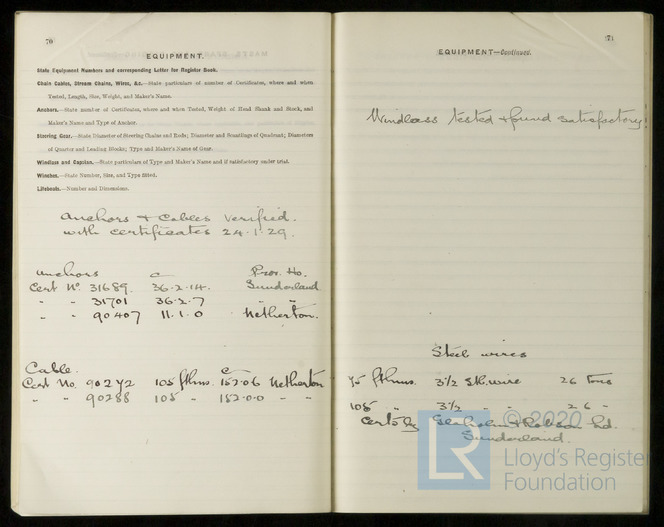 70
EQUIPMENT.
State Equipment Numbers and corresponding Letter for Register Book.
Chain Cables, Stream Chains, Wires, &c.—State particulars of number of Certificates, where and when
Tested, Length, Size, Weight, and Maker's Name.
Anchors.—State number of Certificates, where and when Tested, Weight of Head Shank and Stock, and
Maker's Name and Type of Anchor.
Steering Gear.—State Diameter of Steering Chains and Rods; Diameter and Scantlings of Quadrant; Diameters
of Quarter and Leading Blocks; Type and Maker's Name of Gear.
Windlass and Capstan.—State particulars of Type and Maker's Name and if satisfactory under trial.
Winches.—State Number, Size, and Type fitted.
Lifeboats.—Number and Dimensions.
Anchors & Cables verified.
with certificates 24.1.29.
Anchors c Prov. Ho.
Cert No. 31689. 36-2-14. Sunderland
" " 31701 36-2-7 " "
" " 90407 11.1.0 Netherton.
Cable. c
Cert No. 90272 105 fthms. 152.0.6 Netherton
" " 90288 105 " 152.0.0 " "
71
EQUIPMENT—Continued.
Windlass tested & found satisfactory
Steel wires
75 fthms. 3½ wire 26 Tons
105 " 3½ " " 26 "
Certs by Glaholm & Robson Ld.
Sunderland.
© 2020
LR
Lloyd's Register
Foundation